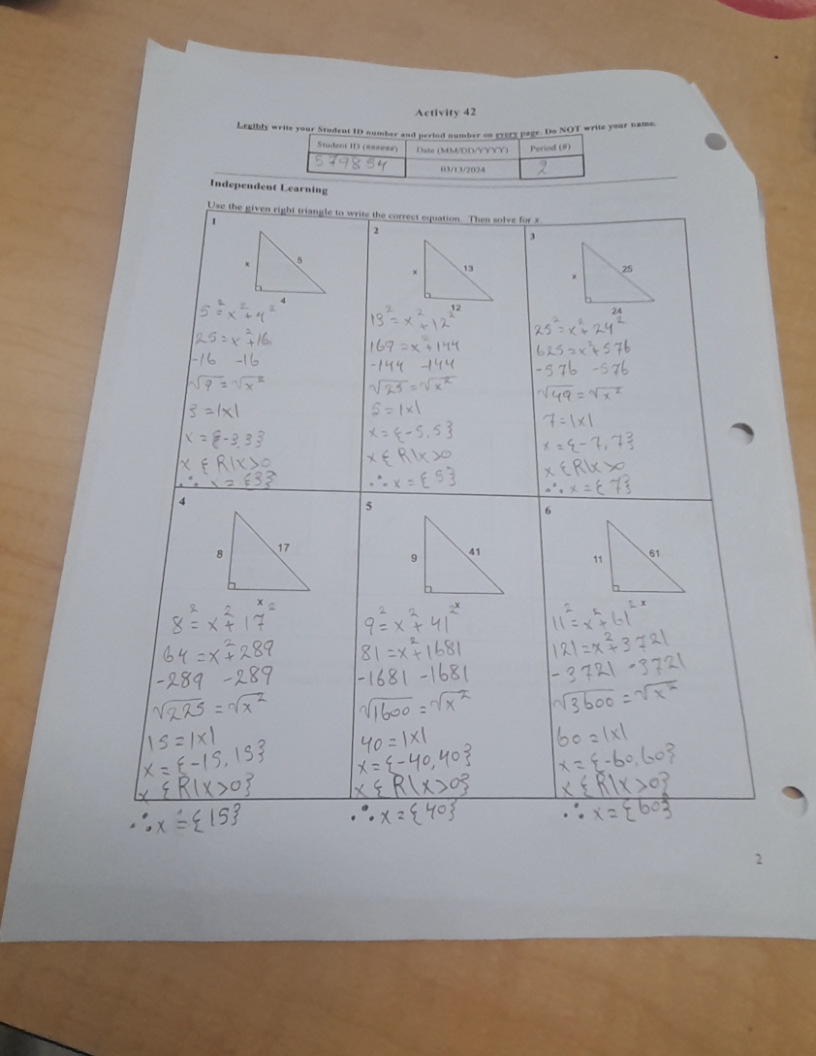 Activity 42
Legibly write your Student ID number and period number on every page. Do NOT write your name.
Student ID (######) Date (MM/DD/YYYY) Period (#)
579854 03/13/2024 2
Independent Learning
Use the given right triangle to write the correct equation. Then solve for x.
1
x 5
4
5² = x² + 4²
25 = x² + 16
-16 -16
√9 = √x²
3 = |x|
x = {-3,3}
x { R|x>0
∴ x = {3}
2
x 13
12
13² = x² + 12²
169 = x² + 144
-144 -144
√25 = √x²
5 = |x|
x = {-5,5}
x { R|x>0
∴ x = {5}
3
x 25
24
25² = x² + 24²
625 = x² + 576
-576 -576
√49 = √x²
7 = |x|
x = {-7,7}
x { R|x>0
∴ x = {7}
4
8 17
x
8² = x² + 17²
64 = x² + 289
-289 -289
√225 = √x²
15 = |x|
x = {-15,15}
x { R|x>0}
∴ x = {15}
5
9 41
x
9² = x² + 41²
81 = x² + 1681
-1681 -1681
√1600 = √x²
40 = |x|
x = {-40,40}
x { R|x>0}
∴ x = {40}
6
11 61
x
11² = x² + 61²
121 = x² + 3721
-3721 -3721
√3600 = √x²
60 = |x|
x = {-60,60}
x { R|x>0}
∴ x = {60}
2